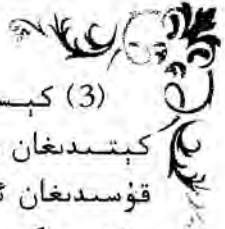 (3) كېس
كېتىدىغان
قۇسىدىغان